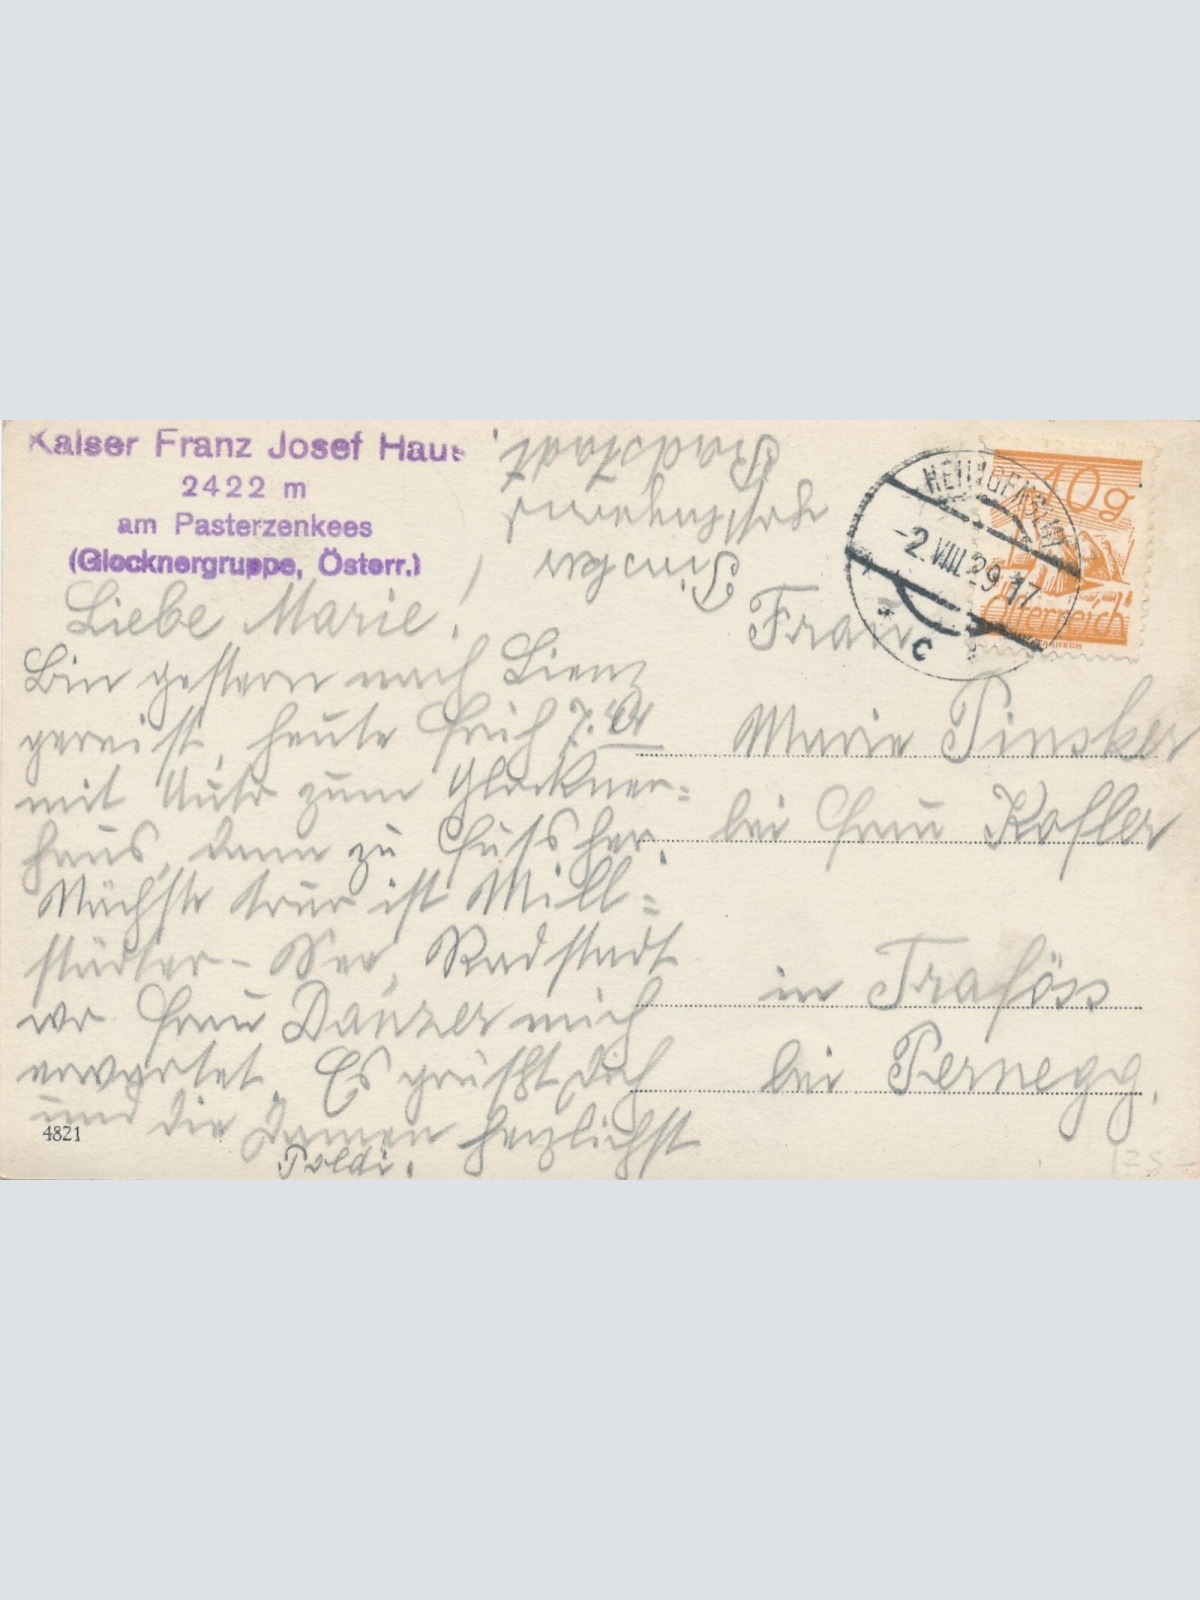 Kaiser Franz Josef Haus
2422 m
am Pasterzenkees
(Glocknergruppe, Österr.)
Liebe Marie!
Bin gestern nach Lienz
gereist, heute früh 7.
mit Auto zum Glockner=
haus, dann zu Fuß her.
Nächste tour ist Mill=
städter-See, Radstadt
wo Frau Danzer mich
erwartet. Es grüßt dich
und die Damen herzlichst
Poldi.
4821
Radstadt.
HEILIGENBLUT
-2.VIII.29 17
* c *
40g
Österreich
Frau
Marie Pinsker
bei Frau Kofler
in Traföss
bei Pernegg.